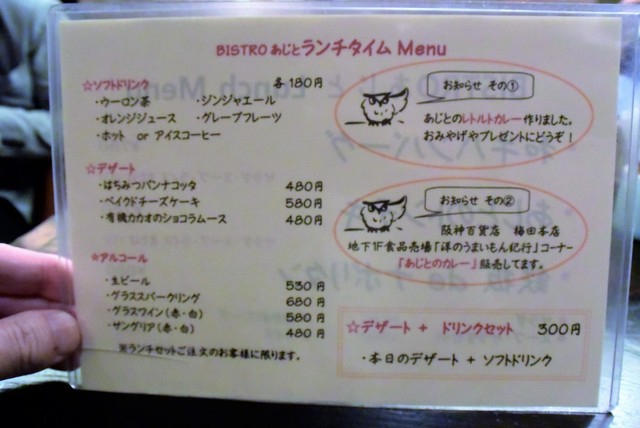 BISTRO あじとランチタイム Menu
☆ソフトドリンク 各180円
・ウーロン茶 ・ジンジャエール
・オレンジジュース ・グレープフルーツ
・ホット or アイスコーヒー
☆デザート
・はちみつパンナコッタ 480円
・ベイクドチーズケーキ 580円
・有機カカオのショコラムース 480円
☆アルコール
・生ビール 530円
・グラススパークリング 680円
・グラスワイン(赤・白) 580円
・サングリア(赤・白) 480円
※ランチセットご注文のお客様に限ります。
お知らせ その①
あじとのレトルトカレー作りました。
おみやげやプレゼントにどうぞ！
お知らせ その②
阪神百貨店 梅田本店
地下1F食品売場「洋のうまいもん紀行」コーナー
「あじとのカレー」販売してます。
☆デザート + ドリンクセット 300円
・本日のデザート + ソフトドリンク